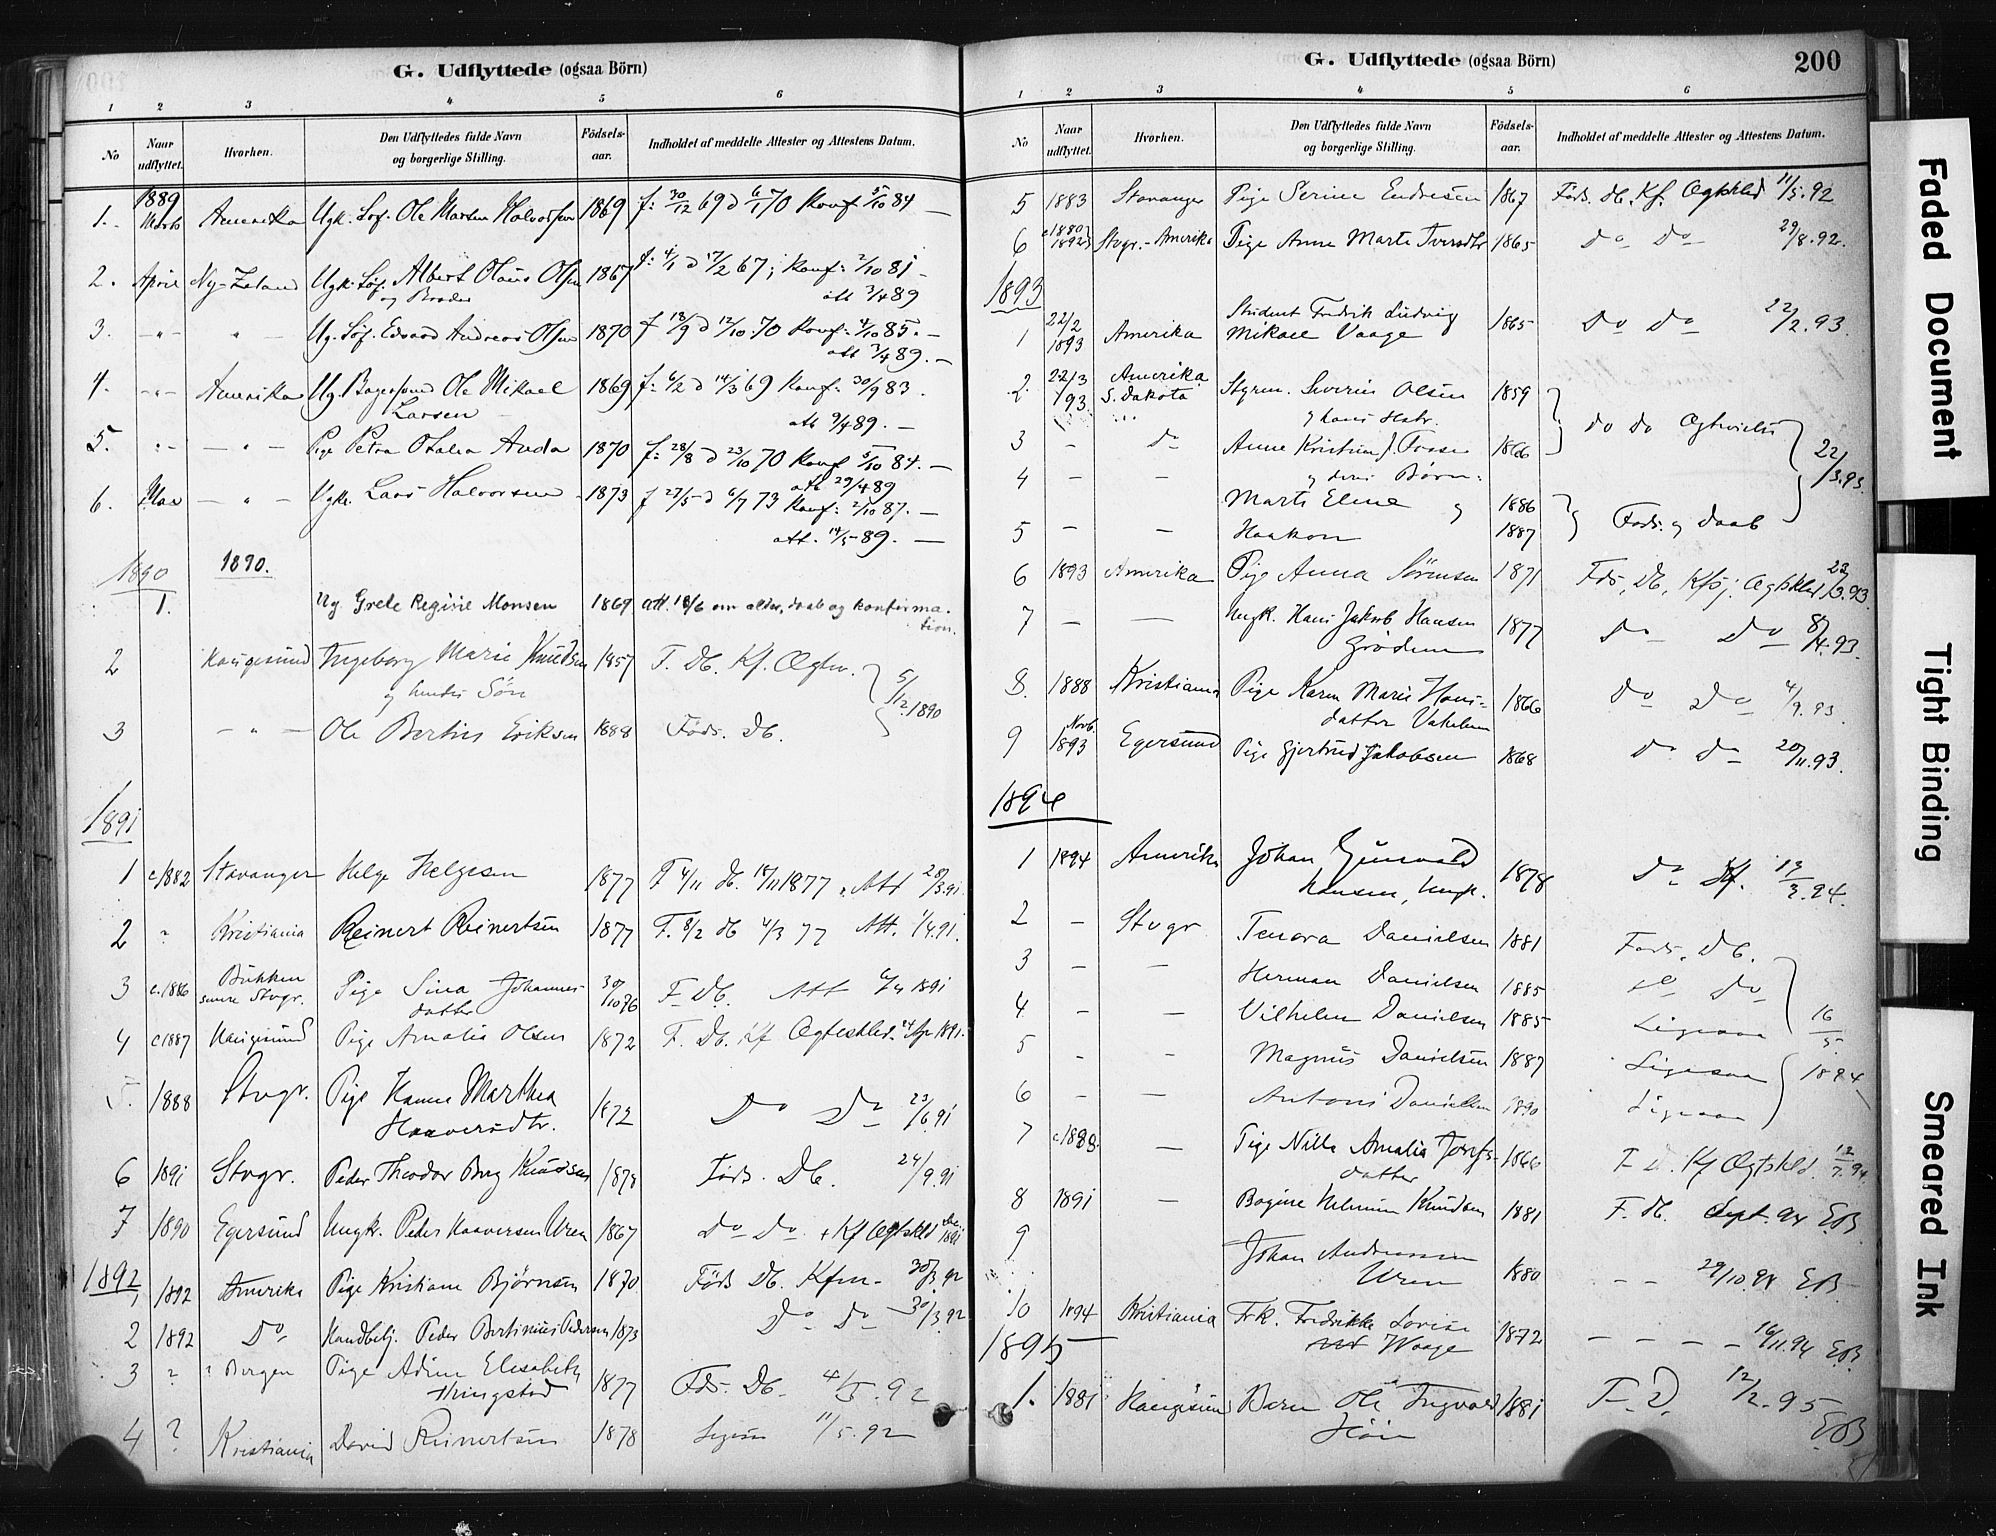 G. Udflyttede (ogsaa Börn)
1 2 3 4 5 6
No Naar udflyttet. Hvorhen. Den Udflyttedes fulde Navn og borgerlige Stilling. Födsels-aar. Indholdet af meddelte Attester og Attestens Datum.
1889
1. Marts Amerika Ugk. Ole Marten Halvorsen 1869 f: 30/12 69 d 6/1 70 Konf 5/10 84 —
2. April Ny-Zeland Ugk. Søf. Albert Olaus Olsen 1867 f: 4/1 d 17/2 67; Konf: 2/10 81 -
og Broder att 3/4 89
3. -"- " - Ug. Søf. Edvard Andreas Olsen 1870 f 13/9 d 12/10 70 Konf: 4/10 85. -
att 3/4 89. —
4. -"- Amerika Ug. Ole Mikael 1869 f: 6/2 d 14/3 69 Konf: 30/9 83.
Larsen att 9/4 89. —
5. -"- — " — Pige Petra Otalia Anda 1870 f: 28/8 d 23/10 70 Konf 5/10 84. —
att 29/4 89
6. Mai — " — Ugk. Lars Halvorsen 1873 f 27/5 d 6/7 73 Konf: 2/10 87. —
att. 14/5 89. —
1890 1890.
1. Ug Grete Regine Monsen 1869 att. 18/6 om alder, daab og konfirma-
tion.
2 Haugesund Ingeborg Marie Knudsen 1857 F. Db. Kf. Ægtv. 5/12 1890
og hendes Søn
3 — " — Ole Bertin Eriksen 1888 Føds. Db.
1891
1 c.1882 Stavanger Helge Helgesen 1877 F 4/11 Db. 18/11 1877. Att 28/3 91.
2 ? Kristiania Reinert Reinertsen 1877 F. 8/2 db 4/3 77 Att. 1/4 91.
3 c.1886 Bukken Pige Sina Johannes- 30/10 76 F. Db. Att 6/4 1891
Stvgr. datter
4 c1887 Haugesund Pige Amalia Olsen 1872 F. Db. Kf Ægteskbld. 24 Apr 1891.
5. 1888 Stvgr. Pige Hanne Marthea 1872 Do Do 23/6 91
Haaversdtr.
6 1891 Stvgr. Peder Theodor Berg Knudsen 1878 Føds. Db. 24/9 91
7 1890 Egersund Ungk. Peder Haaversen Vren 1867 Do Do + Kf Ægtskbld 1891
1892
1 1892 Amerika Pige Kristiane Bjørnsen 1870 Føds Db. Kfm. 30/3 92
2 1892 Do Handbetj. Peder Bertinius Pedersen 1873 Do Do 30/3 92
3 ? ? Bergen Pige Adine Elisabeth 1877 Fds. Db. 4/5. 92
Thingstad
4 ? Kristiania David Reinertsen 1878 Ligesaa 11/5. 92
G. Udflyttede (ogsaa Börn) 200
1 2 3 4 5 6
No Naar udflyttet. Hvorhen. Den Udflyttedes fulde Navn og borgerlige Stilling. Födsels-aar. Indholdet af meddelte Attester og Attestens Datum.
5 1883 Stavanger Pige Serine Endresen 1867 Føds. Db. Kf. Ægtskbld 11/5. 92
6 c1889 1892 Stvgr. - Amerika Pige Anne Marte 1865 Do Do 29/8. 92.
1893
Student Fredrik Ludvig
1 22/2 1893 Amerika Mikael Vaage 1865 Do Do 22/2. 93.
2. 22/3 93 Amerika S. Dakota Styrm. Severin Olsen 1859
og hans Hstr. do do Ægtviede
3 — Do Anne Kristine J. Fosse 1866
4 — — og deres Børn: 22/3. 93.
Marte Eline og 1886
5 — — Haakon 1887 Føds. og daab
6 1893 Amerika Pige Anna Sørensen 1871 Fds, Db, Kfj, Ægtskbld 22/3. 93.
7 — — Ungk. Hans Jakob Hansen 1877 Do Do 8/4. 93.
Grødem
8. 1888 Kristiania Pige Karen Marie Hans- 1866 Do Do 4/9. 93.
datter
9 Novb. 1893 Egersund Pige Gjertrud Jakobsen 1868 Do Do 20/11. 93.
1894
1 1894 Amerika Johan Gunvald 1878 Do Kf. 13/3. 94.
Hansen, Ungk.
2 — Stvgr Tenora Danielsen 1881 Føds. Db.
3 — — Herman Danielsen 1885 Do
4 - — Vilhelm Danielsen 1885 Ligesaa 16/5.
5 - - Magnus Danielsen 1887 Ligesaa 1894
6 - - Antoni Danielsen 1890 Ligesaa
7 c.1888. — Pige Nille Amalia Josefs- 1866 F. D. Kf Ægtskbld. 12/7. 94.
datter
8 1891 — Bogine Helmine Knudsen 1881 F. Db. Sept. 94 EB
9 Johan Andreassen
Vren 1880 - - 29/10. 94 EB
10 1894 Kristiania Frk. Fredrikke Lovise
Waage 1872 - - - - 16/11 94 EB
1895
1. 1881 Haugesund Barn Ole Ingvald 1881 F. D. 12/2. 95
EB
Faded Document
Tight Binding
Smeared Ink